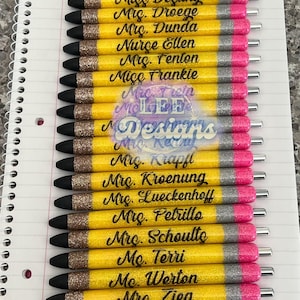 Mrs. Droege
Mrs. Dunda
Nurse Ellen
Mrs. Fenton
Miss Frankie
Mrs.
LEE
Designs
Mrs. Krapfl
Mrs. Kroenung
Mrs. Lueckenhoff
Mrs. Petrillo
Mrs. Schoulte
Ms. Terri
Ms. Werton
Mrs. Zien